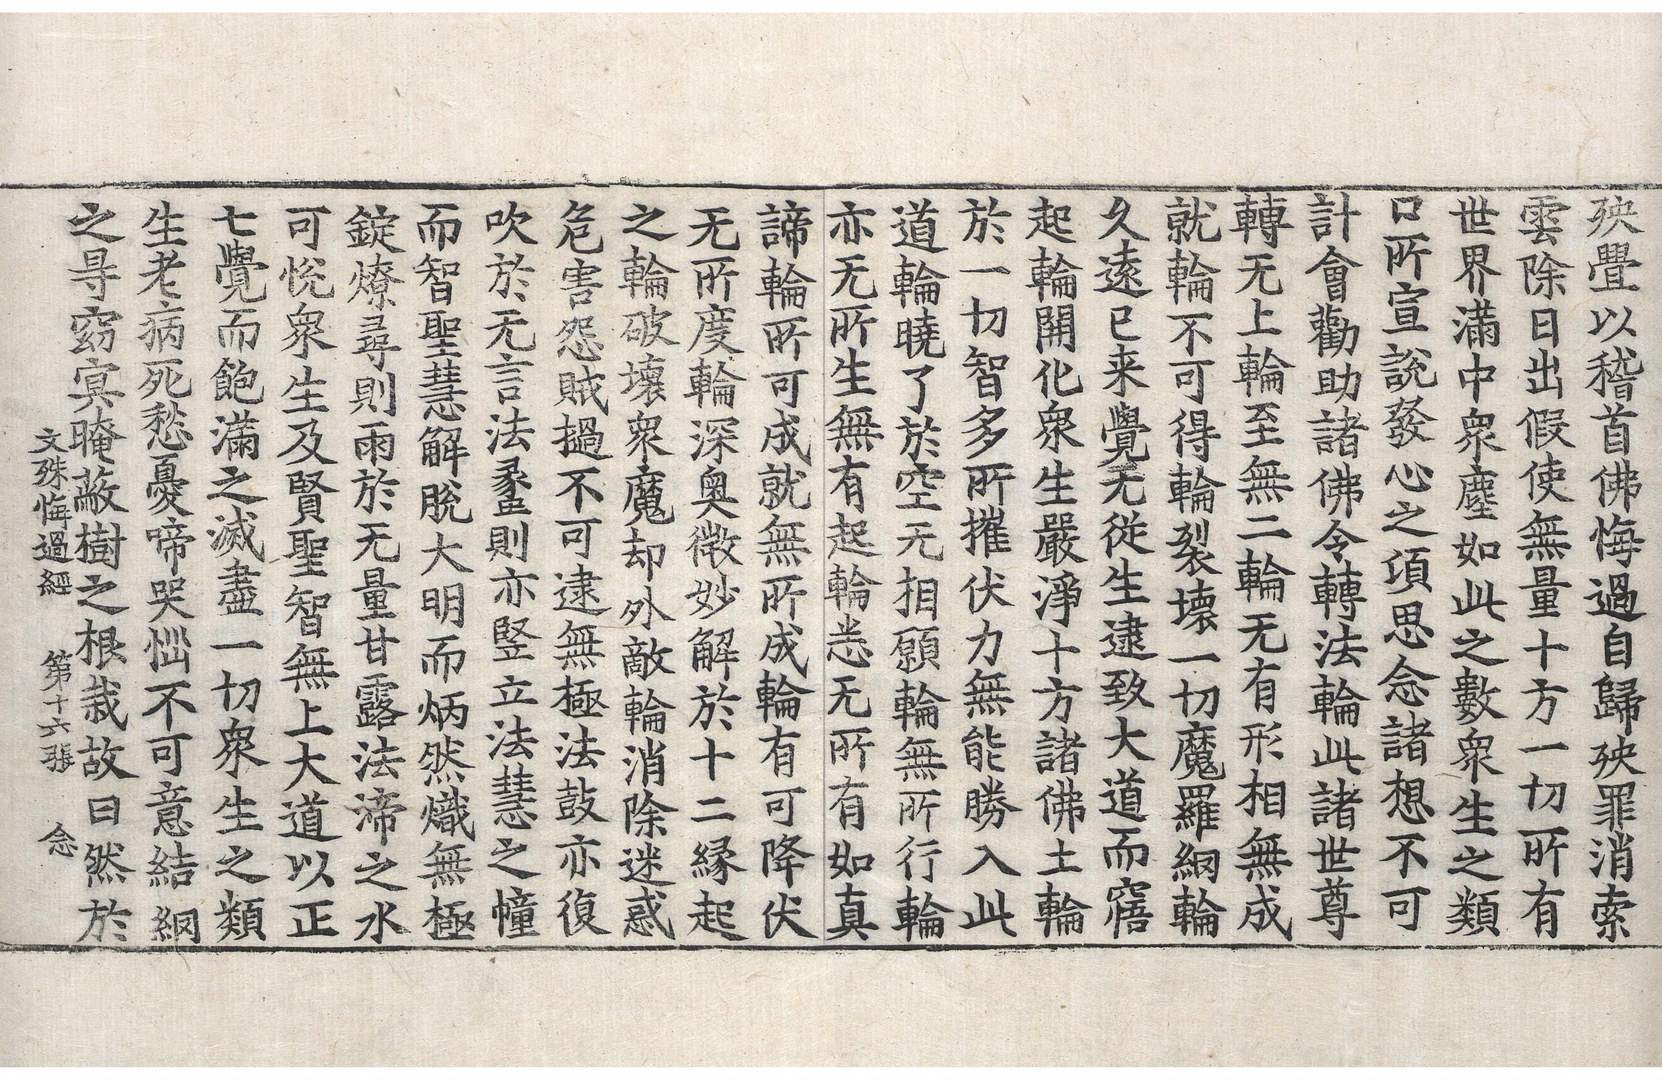 殃舋以稽首佛悔過自歸殃罪消索
雲除日出假使無量十方一切所有
世界滿中衆塵如此之數衆生之類
口所宣說發心之項思念諸想不可
計會勸助諸佛令轉法輪此諸世尊
轉无上輪至無二輪无有形相無成
就輪不可得輪裂壞一切魔羅網輪
久遠已来覺无從生逮致大道而寤
起輪開化衆生嚴淨十方諸佛土輪
於一切智多所摧伏力無能勝入此
道輪曉了於空无相願輪無所行輪
亦无所生無有起輪悉无所有如真
諦輪所可成就無所成輪有可降伏
无所度輪深奥微妙解於十二緣起
之輪破壞衆魔却外敵輪消除迷惑
危害怨賊撾不可逮無極法鼓亦復
吹於无言法蠡則亦竪立法慧之幢
而智聖慧解脫大明而炳然熾無極
錠燎尋則雨於无量甘露法渧之水
可悅衆生及賢聖智無上大道以正
七覺而飽滿之滅盡一切衆生之類
生老病死愁憂啼哭惱不可意結網
之㝵窈冥晻蔽樹之根栽故曰然於
文殊悔過經 第十六張 念